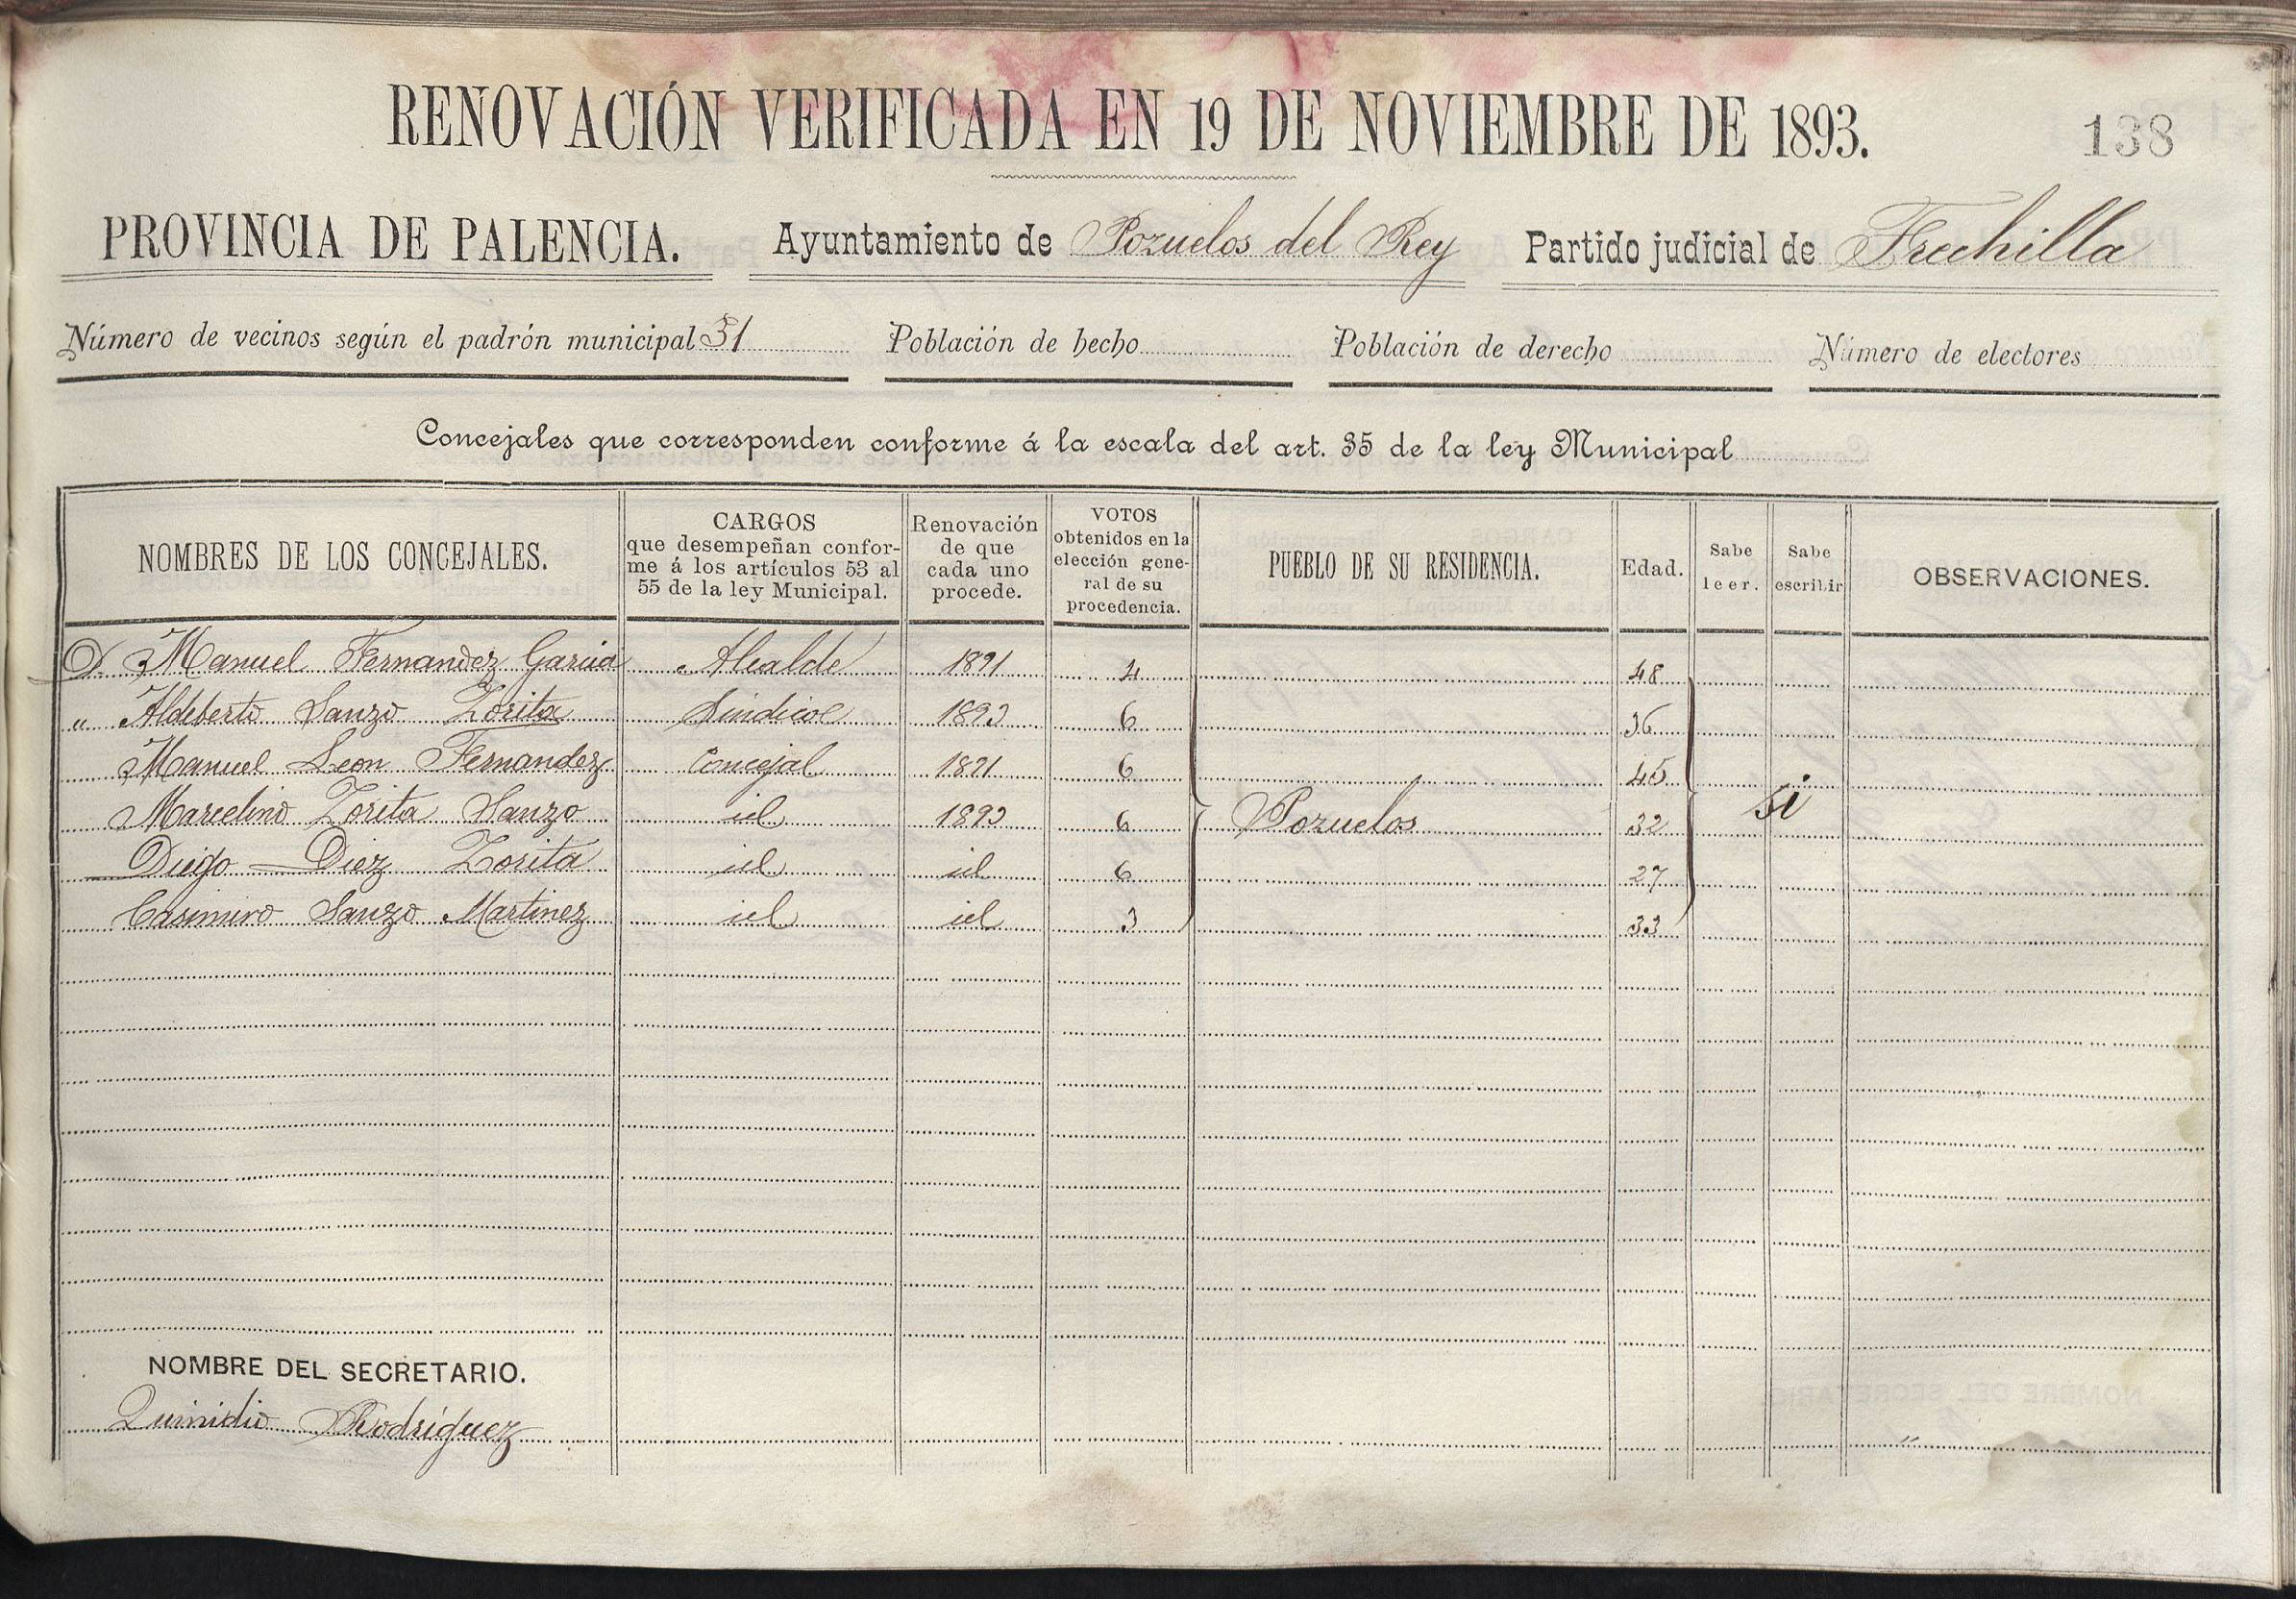 RENOVACIÓN VERIFICADA EN 19 DE NOVIEMBRE DE 1893. 138
PROVINCIA DE PALENCIA. Ayuntamiento de Pozuelos del Rey Partido judicial de Frechilla
Número de vecinos según el padrón municipal 31 Población de hecho Población de derecho Número de electores
Concejales que corresponden conforme á la escala del art. 35 de la ley Municipal
NOMBRES DE LOS CONCEJALES. CARGOS que desempeñan confor-me á los artículos 53 al 55 de la ley Municipal. Renovación de que cada uno procede. VOTOS obtenidos en la elección gene-ral de su procedencia. PUEBLO DE SU RESIDENCIA. Edad. Sabe leer. Sabe escribir OBSERVACIONES.
D. Manuel Fernandez Garcia Alcalde 1891 4 48
" Aldeberto Sanzo Zorita Sindico 1893 6 36
Manuel Leon Fernandez Concejal 1891 6 45
Marcelino Zorita Sanzo id 1893 6 Pozuelos 32 si
Diego Diez Zorita id id 6 27
Casimiro Sanzo Martinez id id 3 33
NOMBRE DEL SECRETARIO.
Rodríguez